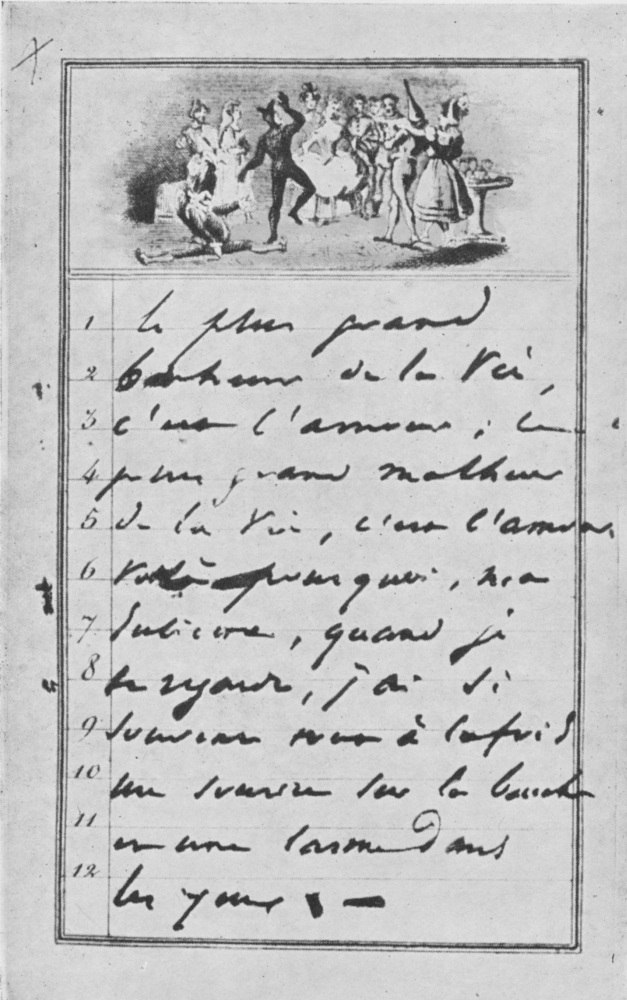 1 le plus grand
2 bonheur de la vie,
3 c'est l'amour ; le
4 plus grand malheur
5 de la vie, c'est l'amour.
6 Voilà pourquoi, ma
7 Juliette, quand je
8 te regarde, j'ai si
9 souvent tout à la fois
10 un sourire sur la bouche
11 et une larme dans
12 les yeux